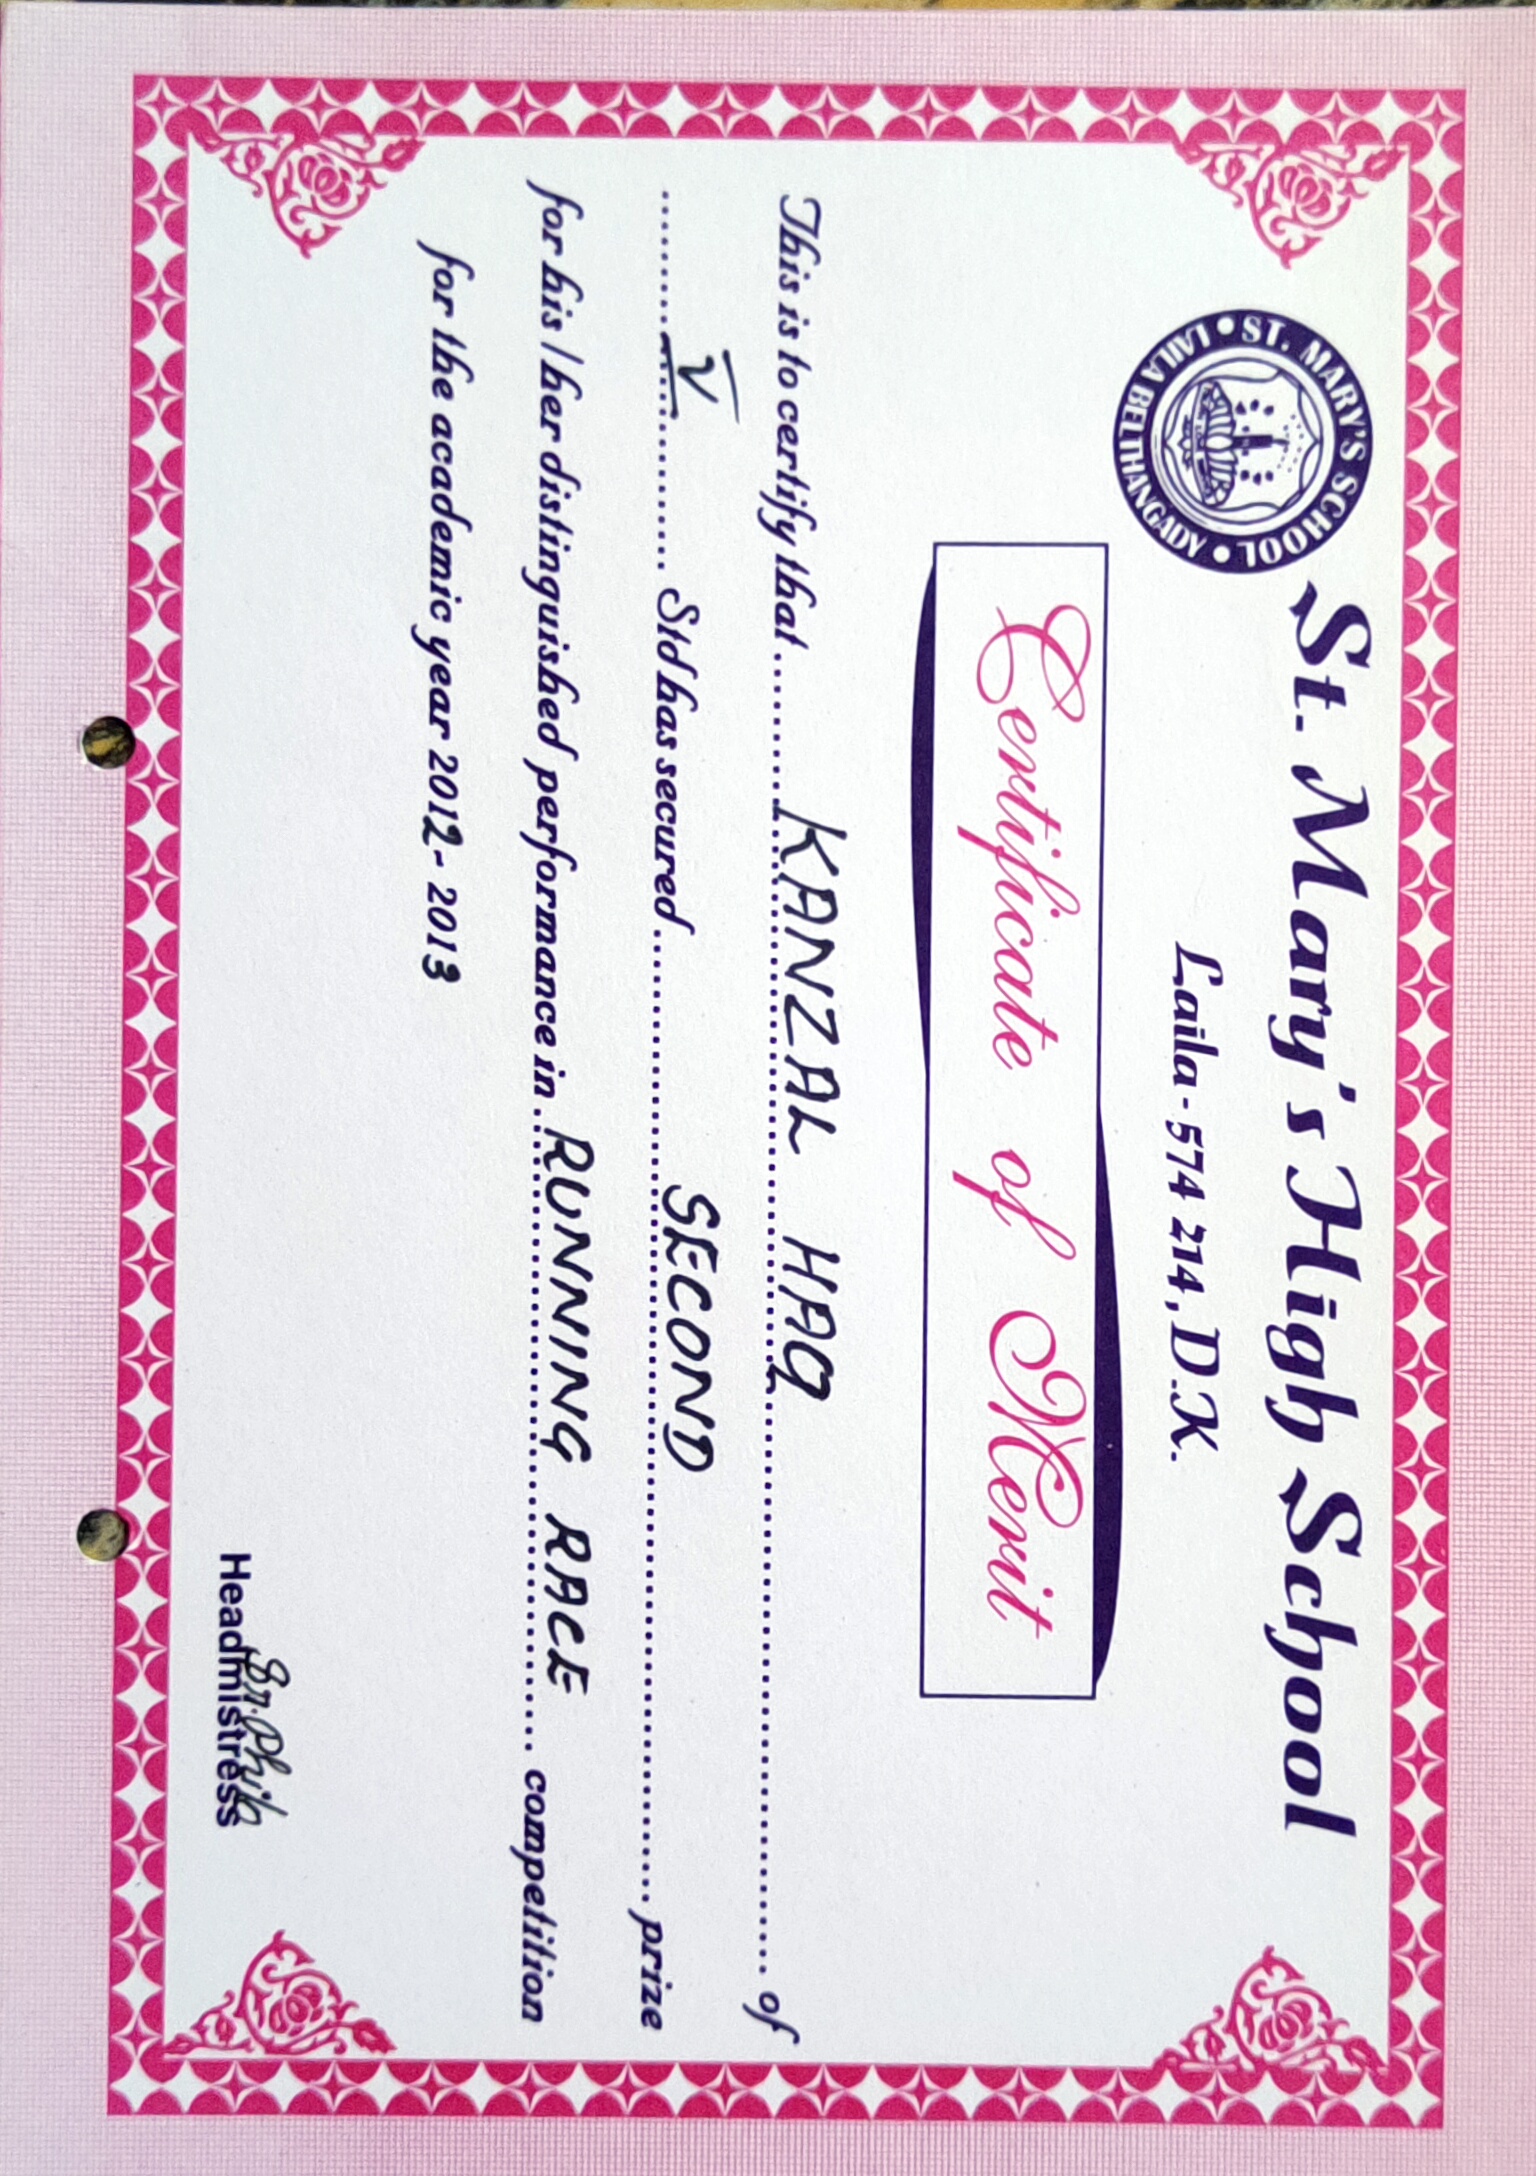 ST. MARY'S SCHOOL • LAILA BELTHANGADY •
St. Mary's High School
Laila - 574 214, D.K.
Certificate of Merit
This is to certify that KANZAL HAQ of
V Std has secured SECOND prize
for his / her distinguished performance in RUNNING RACE competition
for the academic year 2012 - 2013
Sr. Phila
Headmistress